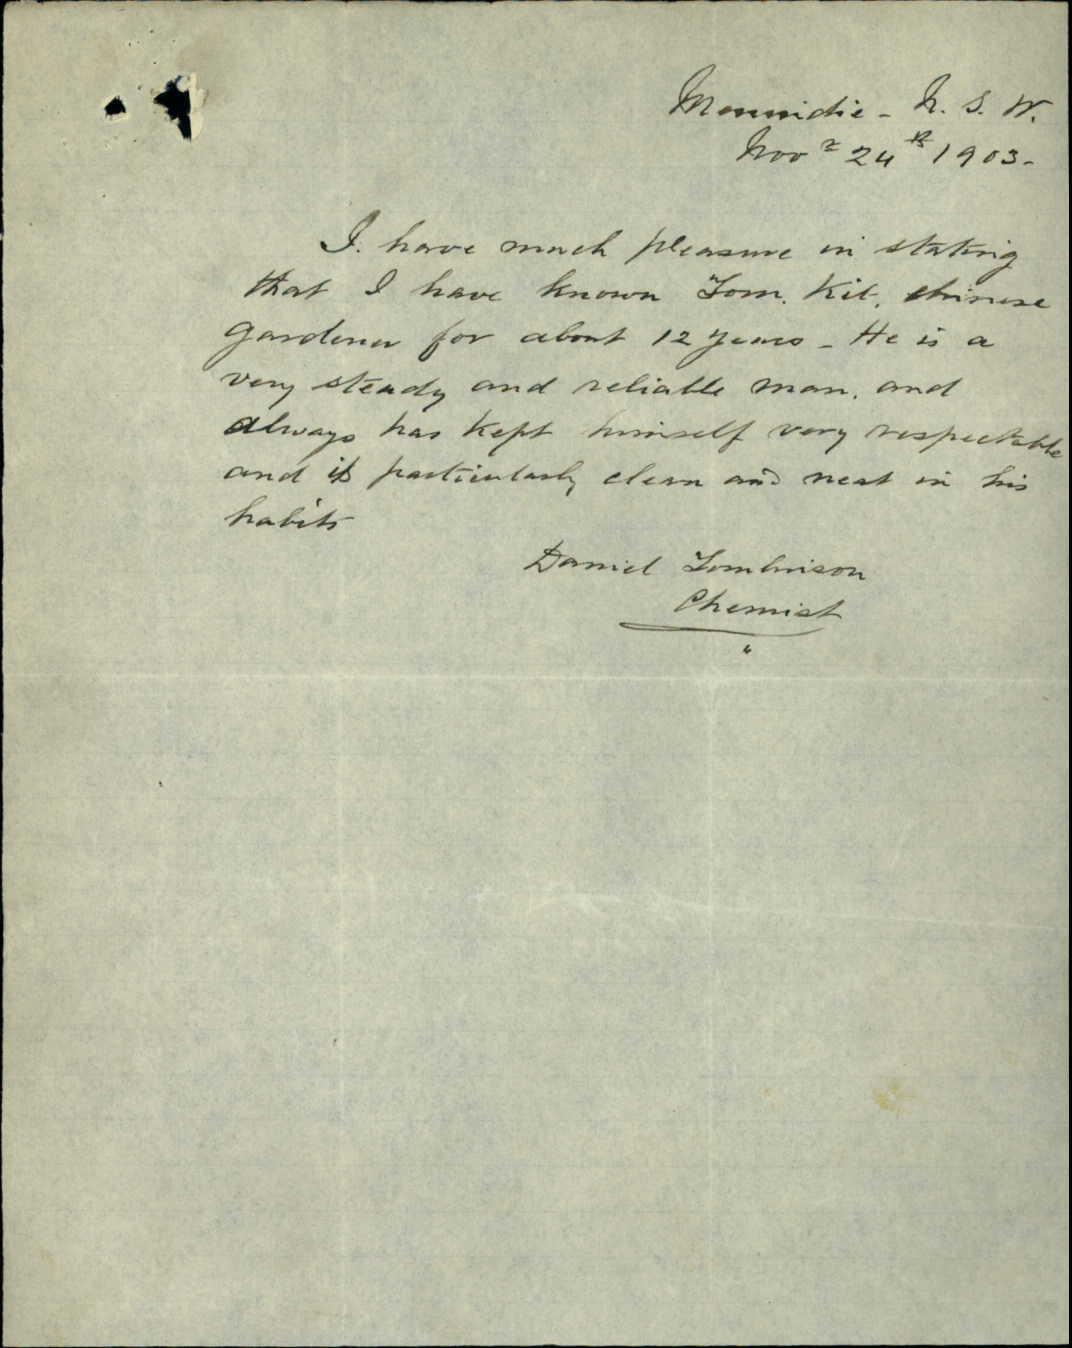 Menindie - N. S. W.
Novr 24th 1903-
I. have much pleasure in stating
that I have known Tom. Kit. chinese
gardener for about 12 years - He is a
very steady and reliable man. and
always has kept himself very respectable
and is particularly clean and neat in his
habits
Daniel Tomlinson
Chemist
"